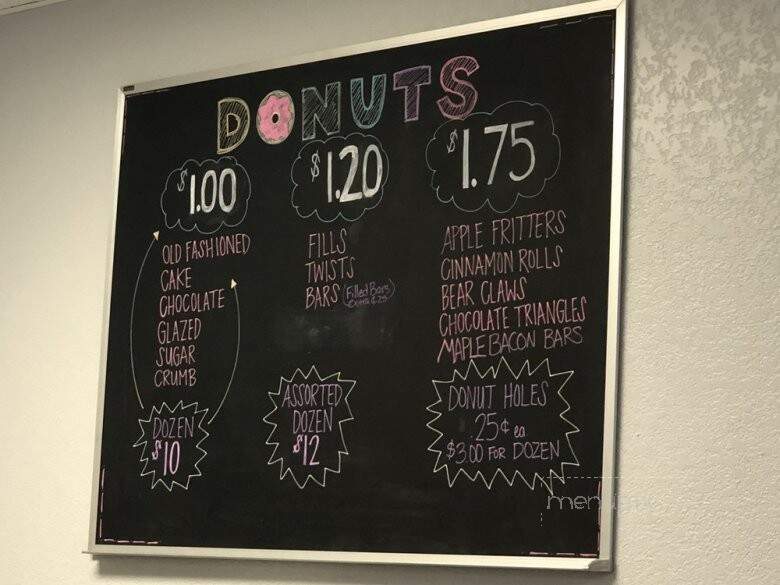 DONUTS
$1.00
OLD FASHIONED
CAKE
CHOCOLATE
GLAZED
SUGAR
CRUMB
DOZEN
$10
$1.20
FILLS
TWISTS
BARS (Filled Bars
extra ¢25)
ASSORTED
DOZEN
$12
$1.75
APPLE FRITTERS
CINNAMON ROLLS
BEAR CLAWS
CHOCOLATE TRIANGLES
MAPLE BACON BARS
DONUT HOLES
.25¢ ea
$3.00 FOR DOZEN